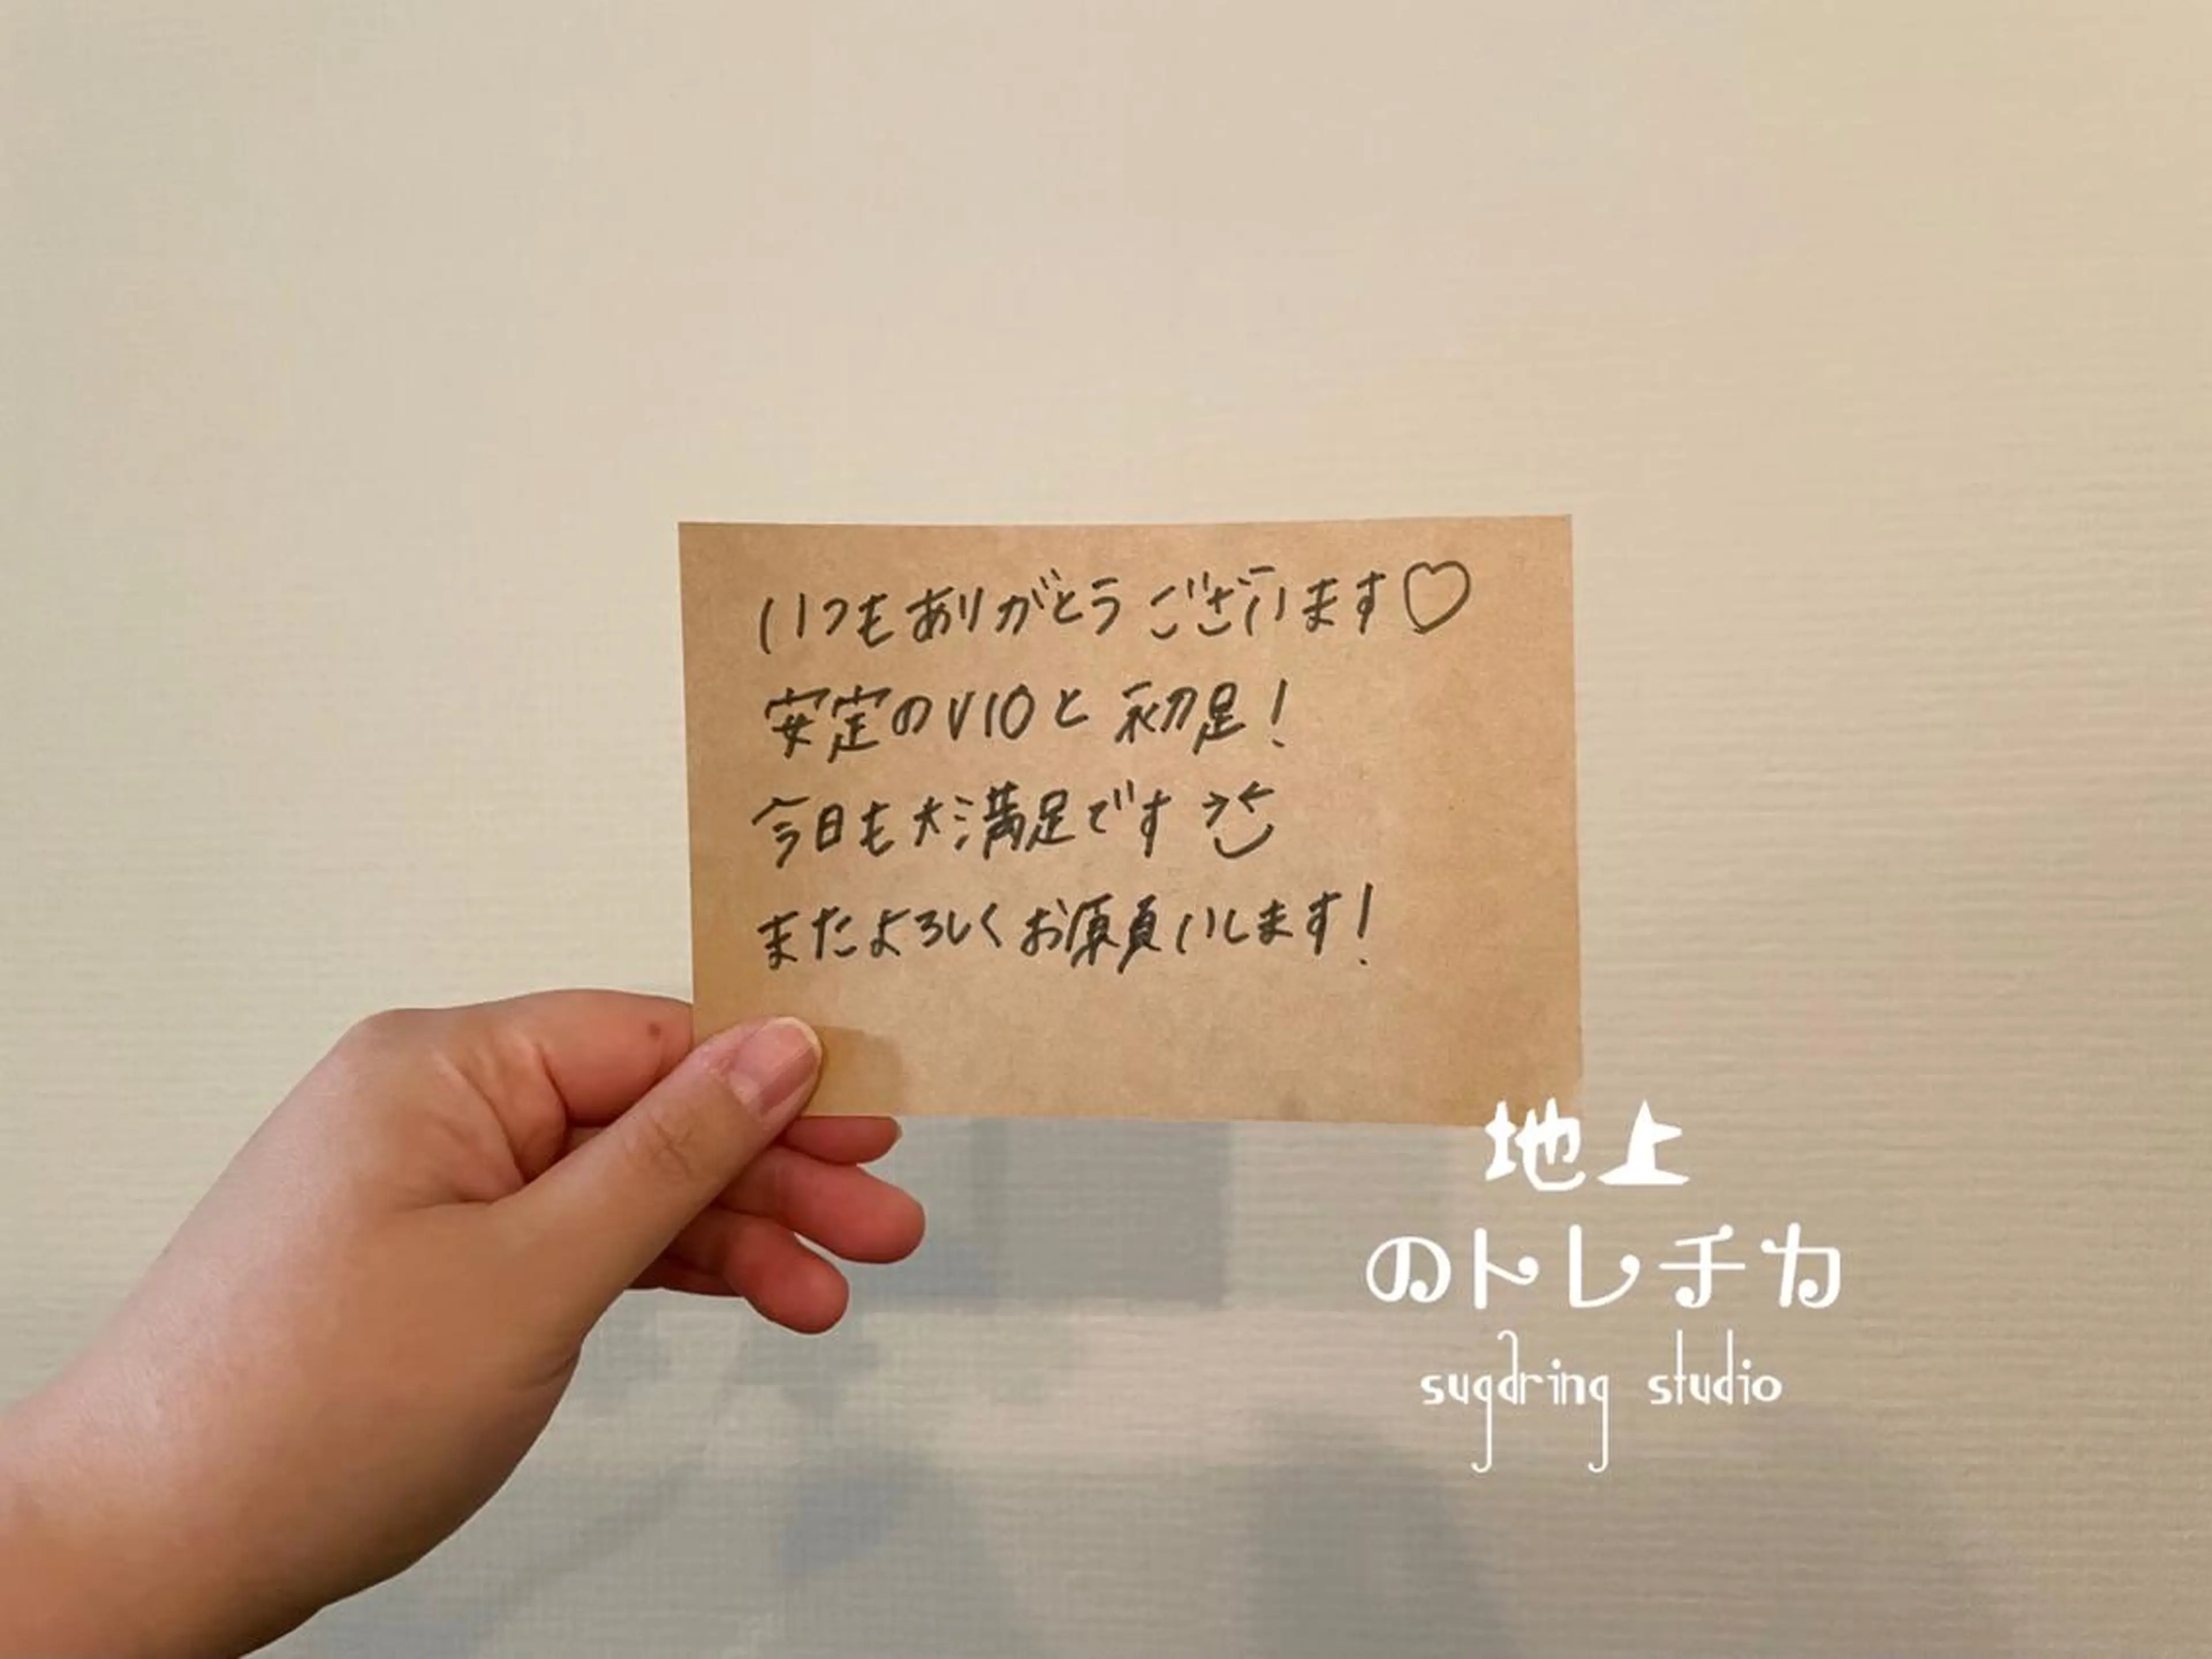 いつもありがとうございます♡
安定のVIOと初足!
今日も大満足です
またよろしくお願いします!
地上
のトレチカ
sugaring studio